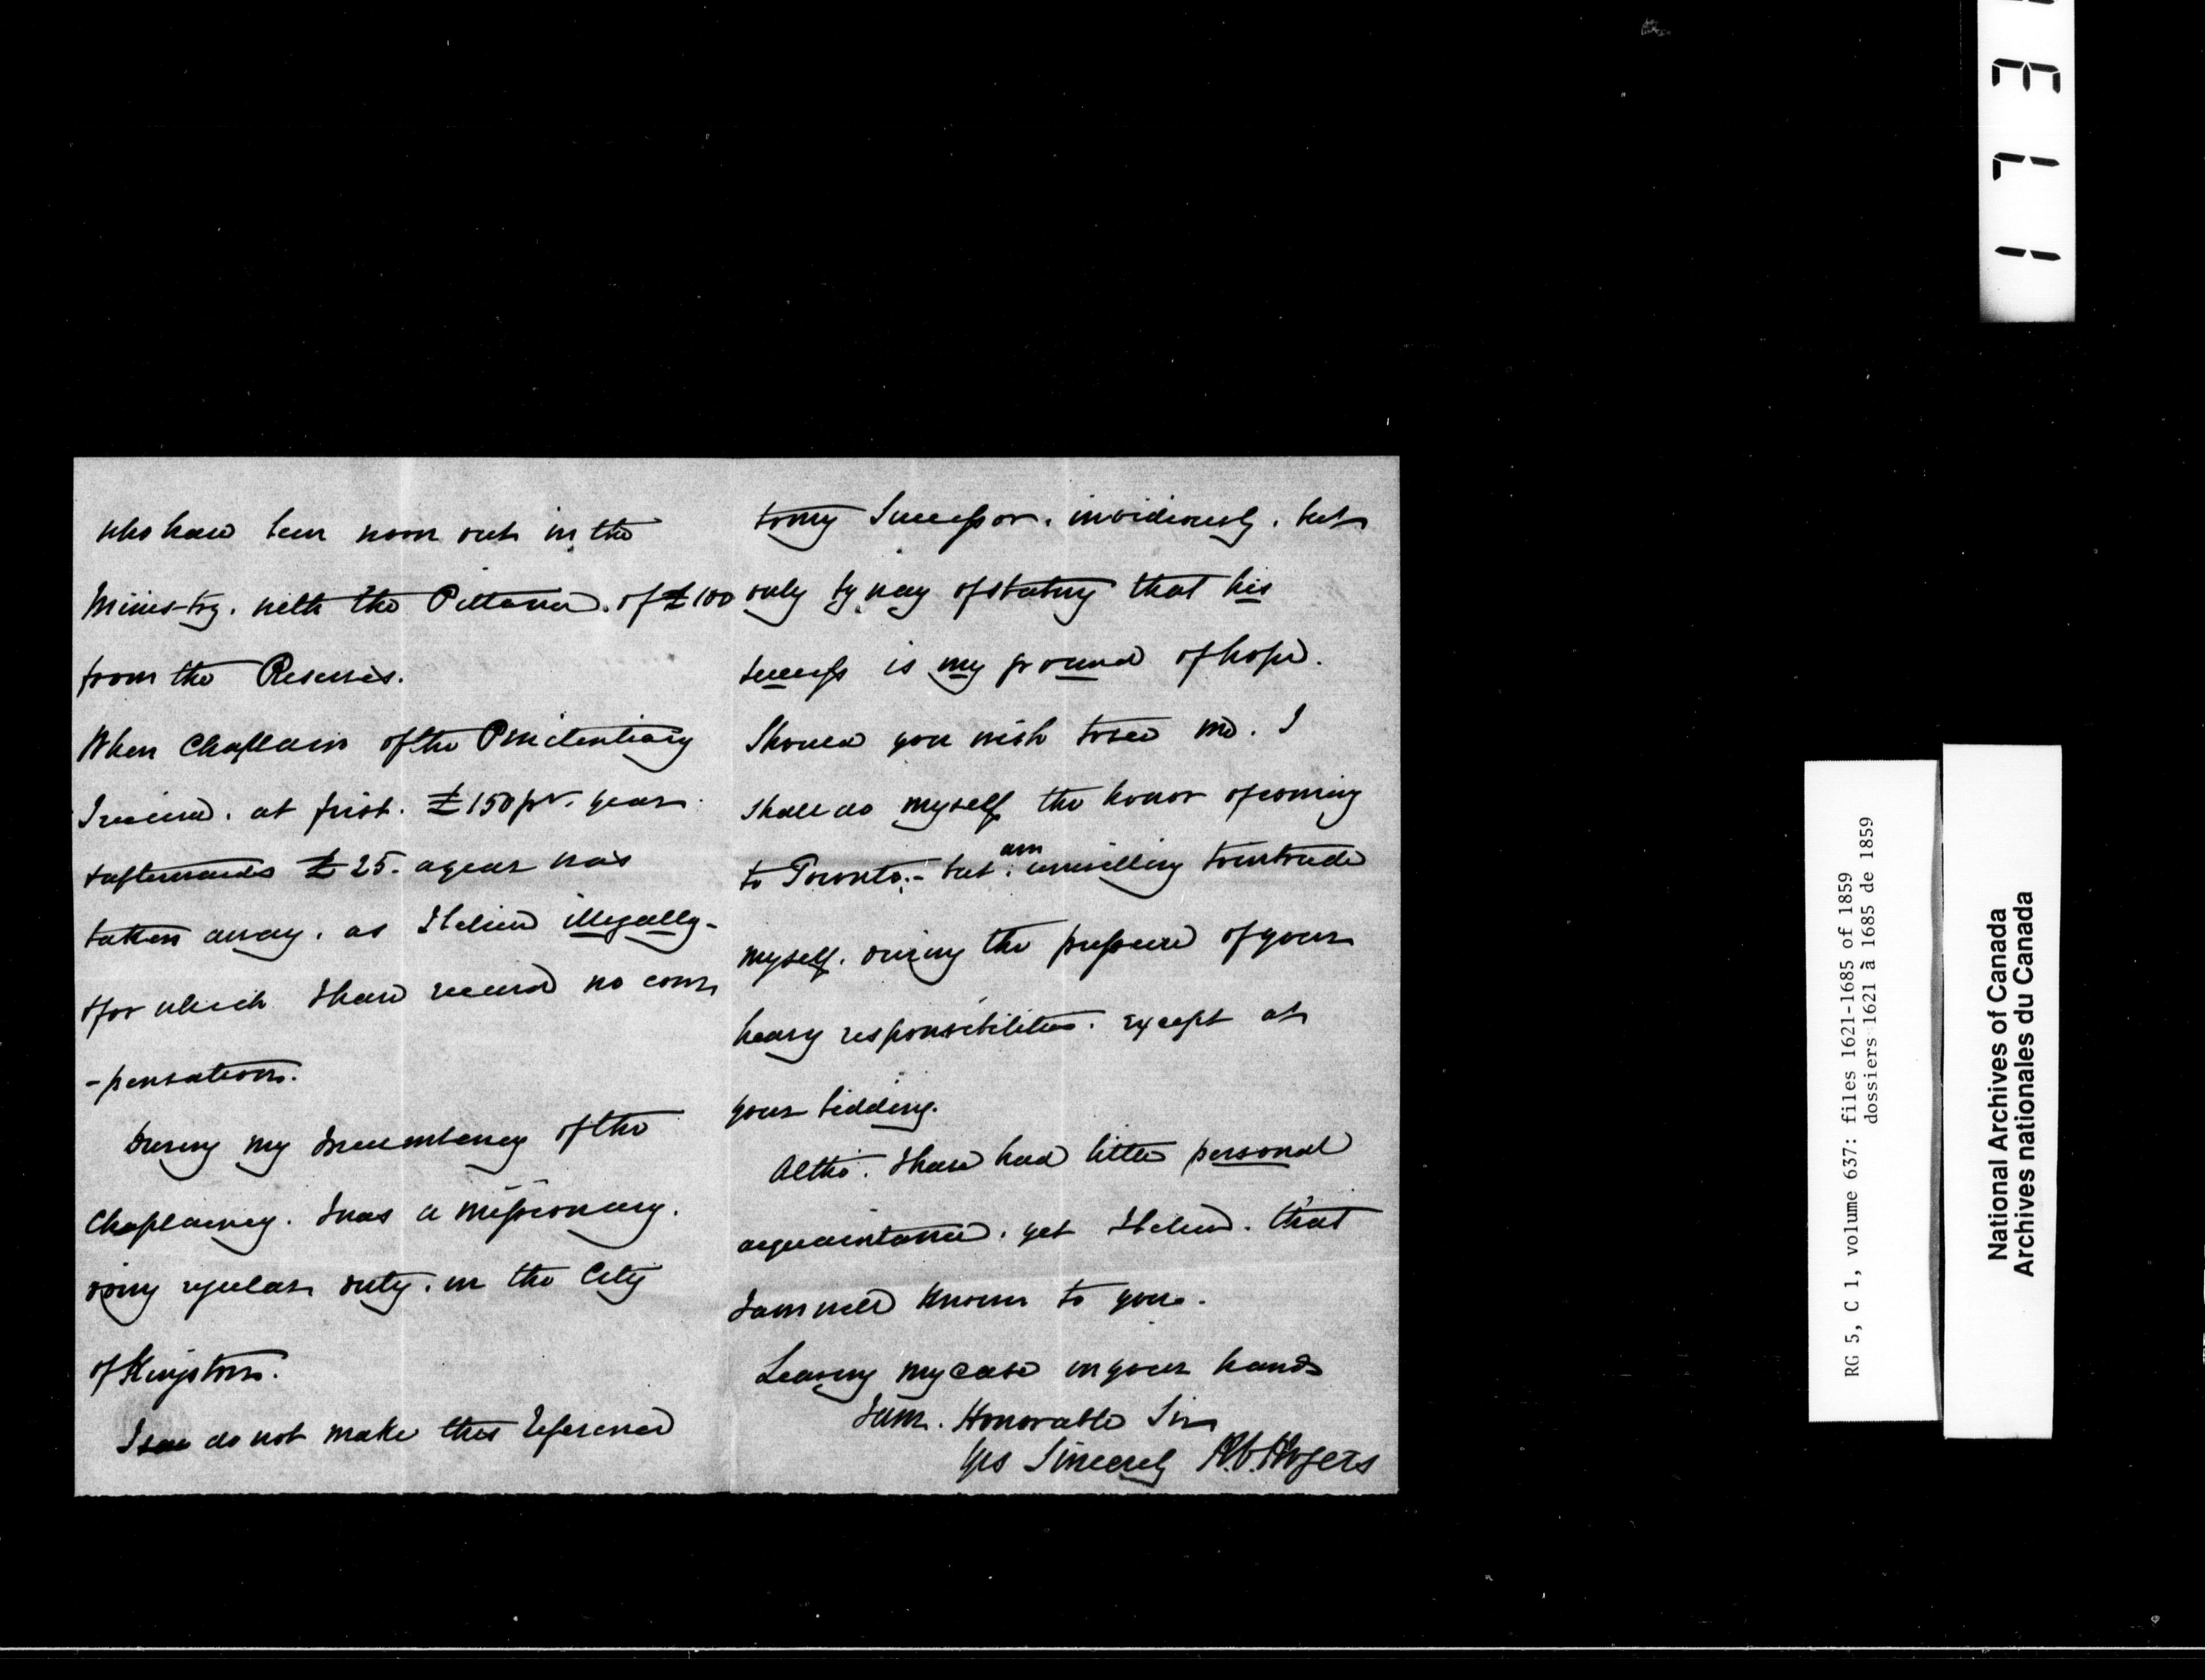 who have been worn out in the
Ministry. with the Pittance. of £100
from the Reserves.
When Chaplain of the Penitentiary
I received. at first. £150 pr. year
& afterwards £25. a year was
taken away. as I believe illegally-
& for which I have received no com
-pensation.
During my Incumbency of the
Chaplaincy. I was a missionary.
doing regular duty. in the City
of Kingston.
I do not make this reference
to my Successor. invidiously. but
only by way of stating that his
success is my ground of hope.
Should you wish to see me. I
shall do myself the honor of coming
to Toronto;- but am unwilling to intrude
myself. during the pressure of your
heavy responsibilities. Except at
your bidding.
Altho'. I have had little personal
acquaintance. yet I believe. that
I am well known to you.
Leaving my case in your hands
I am. Honorable Sir
Yrs Sincerely R.V. Rogers
1 7 3
RG 5, C 1, volume 637: files 1621-1685 of 1859
dossiers 1621 à 1685 de 1859
National Archives of Canada
Archives nationales du Canada